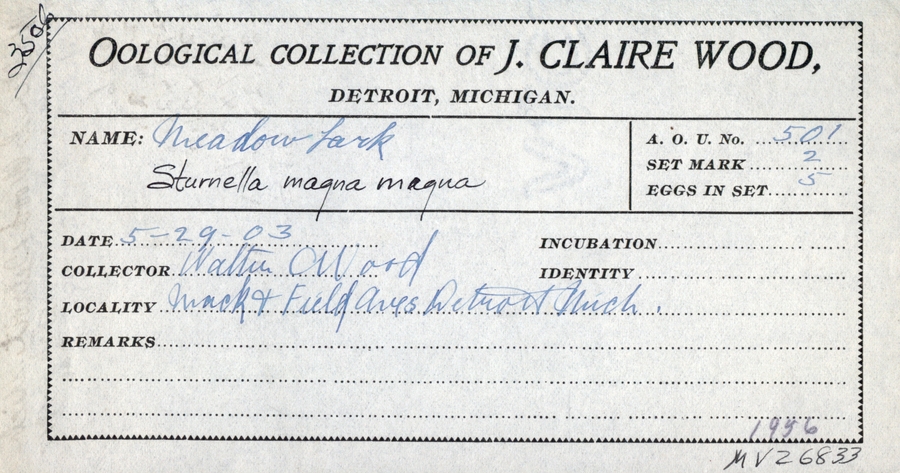 2506
OOLOGICAL COLLECTION OF J. CLAIRE WOOD,
DETROIT, MICHIGAN.
NAME: Meadow Lark
Sturnella magna magna
A. O. U. No. 501
SET MARK 2
EGGS IN SET 5
DATE 5-29-03
COLLECTOR Walter C Wood
LOCALITY Mack & Field Aves Detroit Mich.
INCUBATION
IDENTITY
REMARKS
1956
MVZ6833